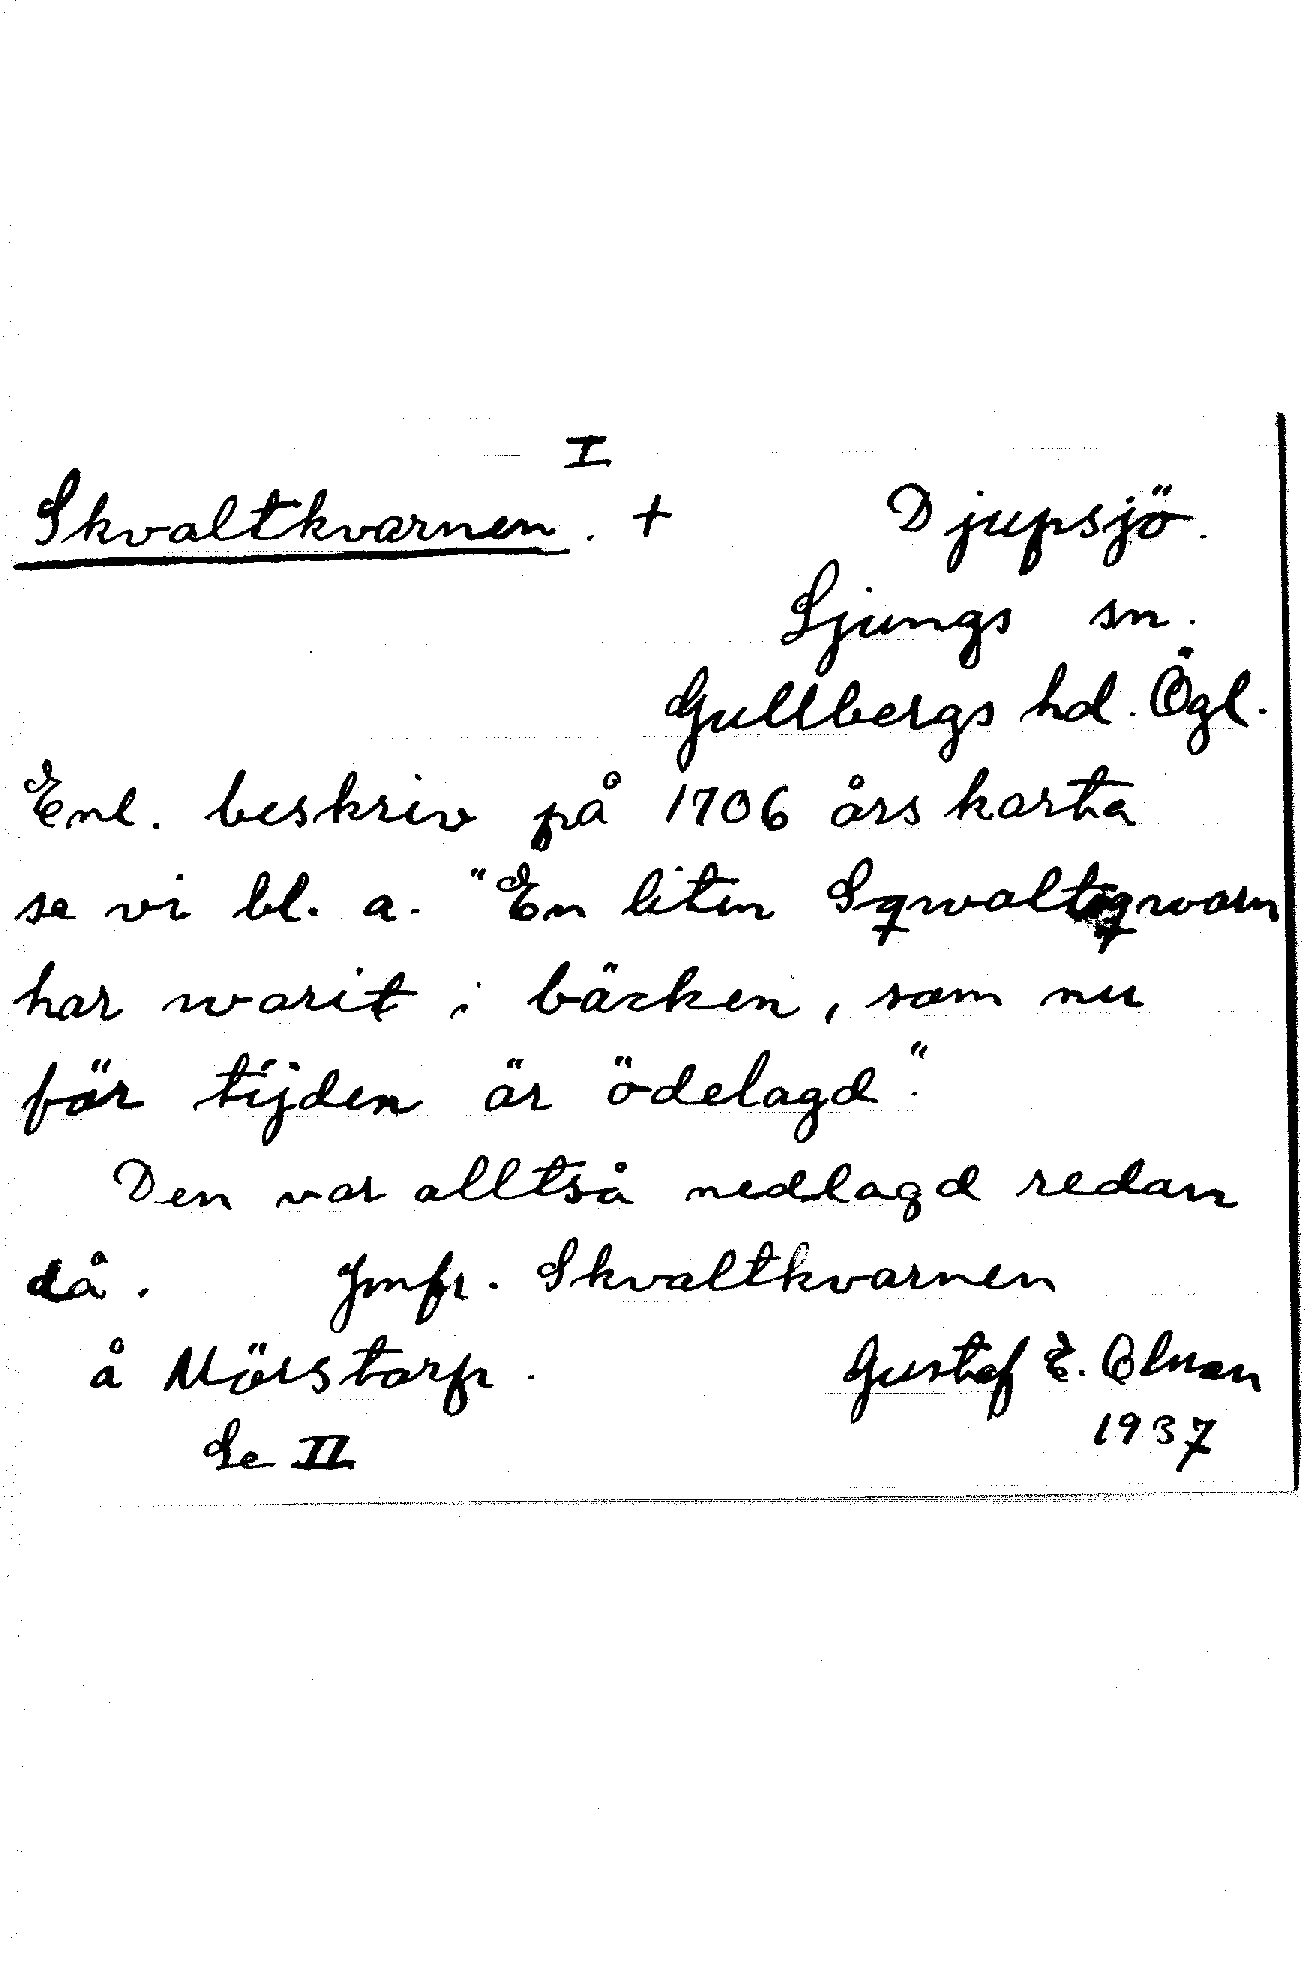 I
Skvaltkvarnen. + Djupsjö.
Ljungs sn.
Gullbergs hd. Ögl.
Enl. beskriv på 1706 års karta
se vi bl. a. "En liten Sqwaltqwarn
har warit i bäcken, som nu
för tijden är ödelagd."
Den var alltså nedlagd redan
då. Jmfr. Skvaltkvarnen
å Mörstorp.
Gustaf E.
Se II
1937